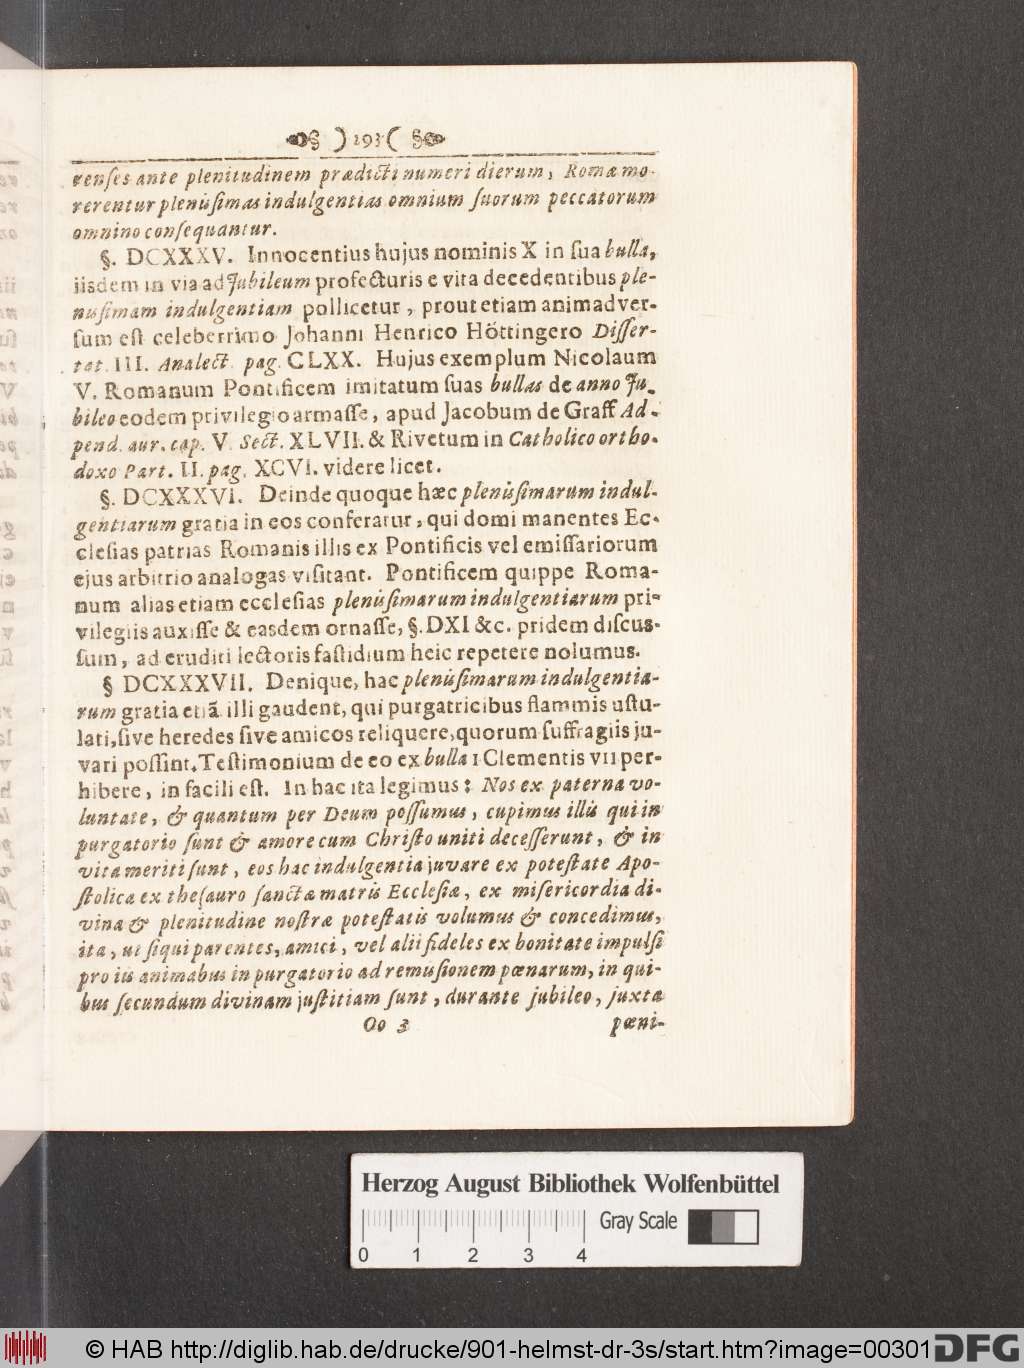 § )293( §
renses ante plenitudinem prædicti numeri dierum, Romæ mo-
rerentur plenissimas indulgentias omnium suorum peccatorum
omnino consequantur.
§. DCXXXV. Innocentius hujus nominis X in sua bulla,
iisdem in via ad Jubileum profecturis e vita decedentibus ple-
nissimam indulgentiam pollicetur, prout etiam animadver-
sum est celeberrimo Johanni Henrico Höttingero Disser-
tat. III. Analect. pag. CLXX. Hujus exemplum Nicolaum
V. Romanum Pontificem imitatum suas bullas de anno Ju-
bileo eodem privilegio armasse, apud Jacobum de Graff Ad-
pend. aur. cap. V. Sect. XLVII. & Rivetum in Catholico ortho-
doxo Part. II. pag. XCVI. videre licet.
§. DCXXXVI. Deinde quoque hæc plenissimarum indul-
gentiarum gratia in eos conferatur, qui domi manentes Ec-
clesias patrias Romanis illis ex Pontificis vel emissariorum
ejus arbitrio analogas visitant. Pontificem quippe Roma-
num alias etiam ecclesias plenissimarum indulgentiarum pri-
vilegiis auxisse & easdem ornasse, §. DXI &c. pridem discus-
sum, ad eruditi lectoris fastidium heic repetere nolumus.
§ DCXXXVII. Denique, hac plenissimarum indulgentia-
rum gratia etiã illi gaudent, qui purgatricibus flammis ustu-
lati, sive heredes sive amicos reliquere, quorum suffragiis ju-
vari possint. Testimonium de eo ex bulla I Clementis VII per-
hibere, in facili est. In hac ita legimus: Nos ex paterna vo-
luntate, & quantum per Deum possumus, cupimus illis qui in
purgatorio sunt & amore cum Christo uniti decesserunt, & in
vita meriti sunt, eos hac indulgentia juvare ex potestate Apo-
stolica ex thesauro sanctæ matris Ecclesiæ, ex misericordia di-
vina & plenitudine nostræ potestatis volumus & concedimus,
ita, ut si qui parentes, amici, vel alii fideles ex bonitate impulsi
pro iis animabus in purgatorio ad remissionem pœnarum, in qui-
bus secundum divinam justitiam sunt, durante jubileo, juxta
Oo 3 pœni-
Herzog August Bibliothek Wolfenbüttel
Gray Scale
0 1 2 3 4
© HAB http://diglib.hab.de/drucke/901-helmst-dr-3s/start.htm?image=00301 DFG